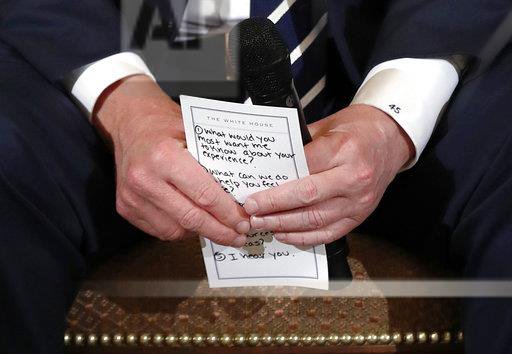 AP
45
THE WHITE HOUSE
① What would you
most want me
to know about your
experience?
What can we do
help you feel
?
⑤ I hear you.